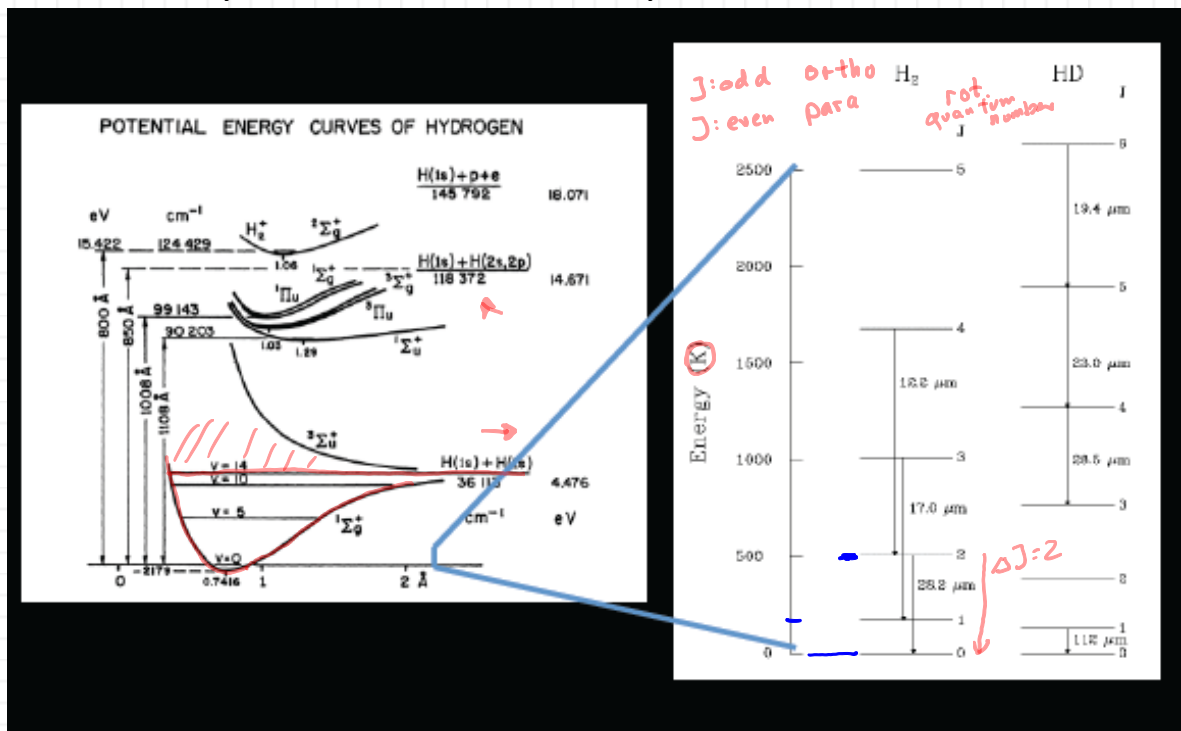 POTENTIAL ENERGY CURVES OF HYDROGEN
H(1s)+p+e
145 792
18.071
eV
cm⁻¹
15.422
124 429
H₂⁺
²Σg⁺
1.06
H(1s)+H(2s,2p)
118 372
14.671
¹Σg⁺
³Σg⁺
¹Πu
³Πu
99 143
90 203
1.03
1.29
¹Σu⁺
800 Å
850 Å
1008 Å
1108 Å
³Σu⁺
v = 14
v = 10
v = 5
v=0
H(1s) + H(1s)
4.476
¹Σg⁺
cm⁻¹
eV
-2179
0
0.7416
1
2 Å
J: odd ortho
J: even para
H₂
HD
rot.
quantum
number
J
J
Energy (K)
2500
2000
1500
1000
500
0
5
4
3
2
1
0
17.0 μm
28.2 μm
ΔJ=2
5
4
3
2
1
0
19.4 μm
23.0 μm
28.5 μm
112 μm